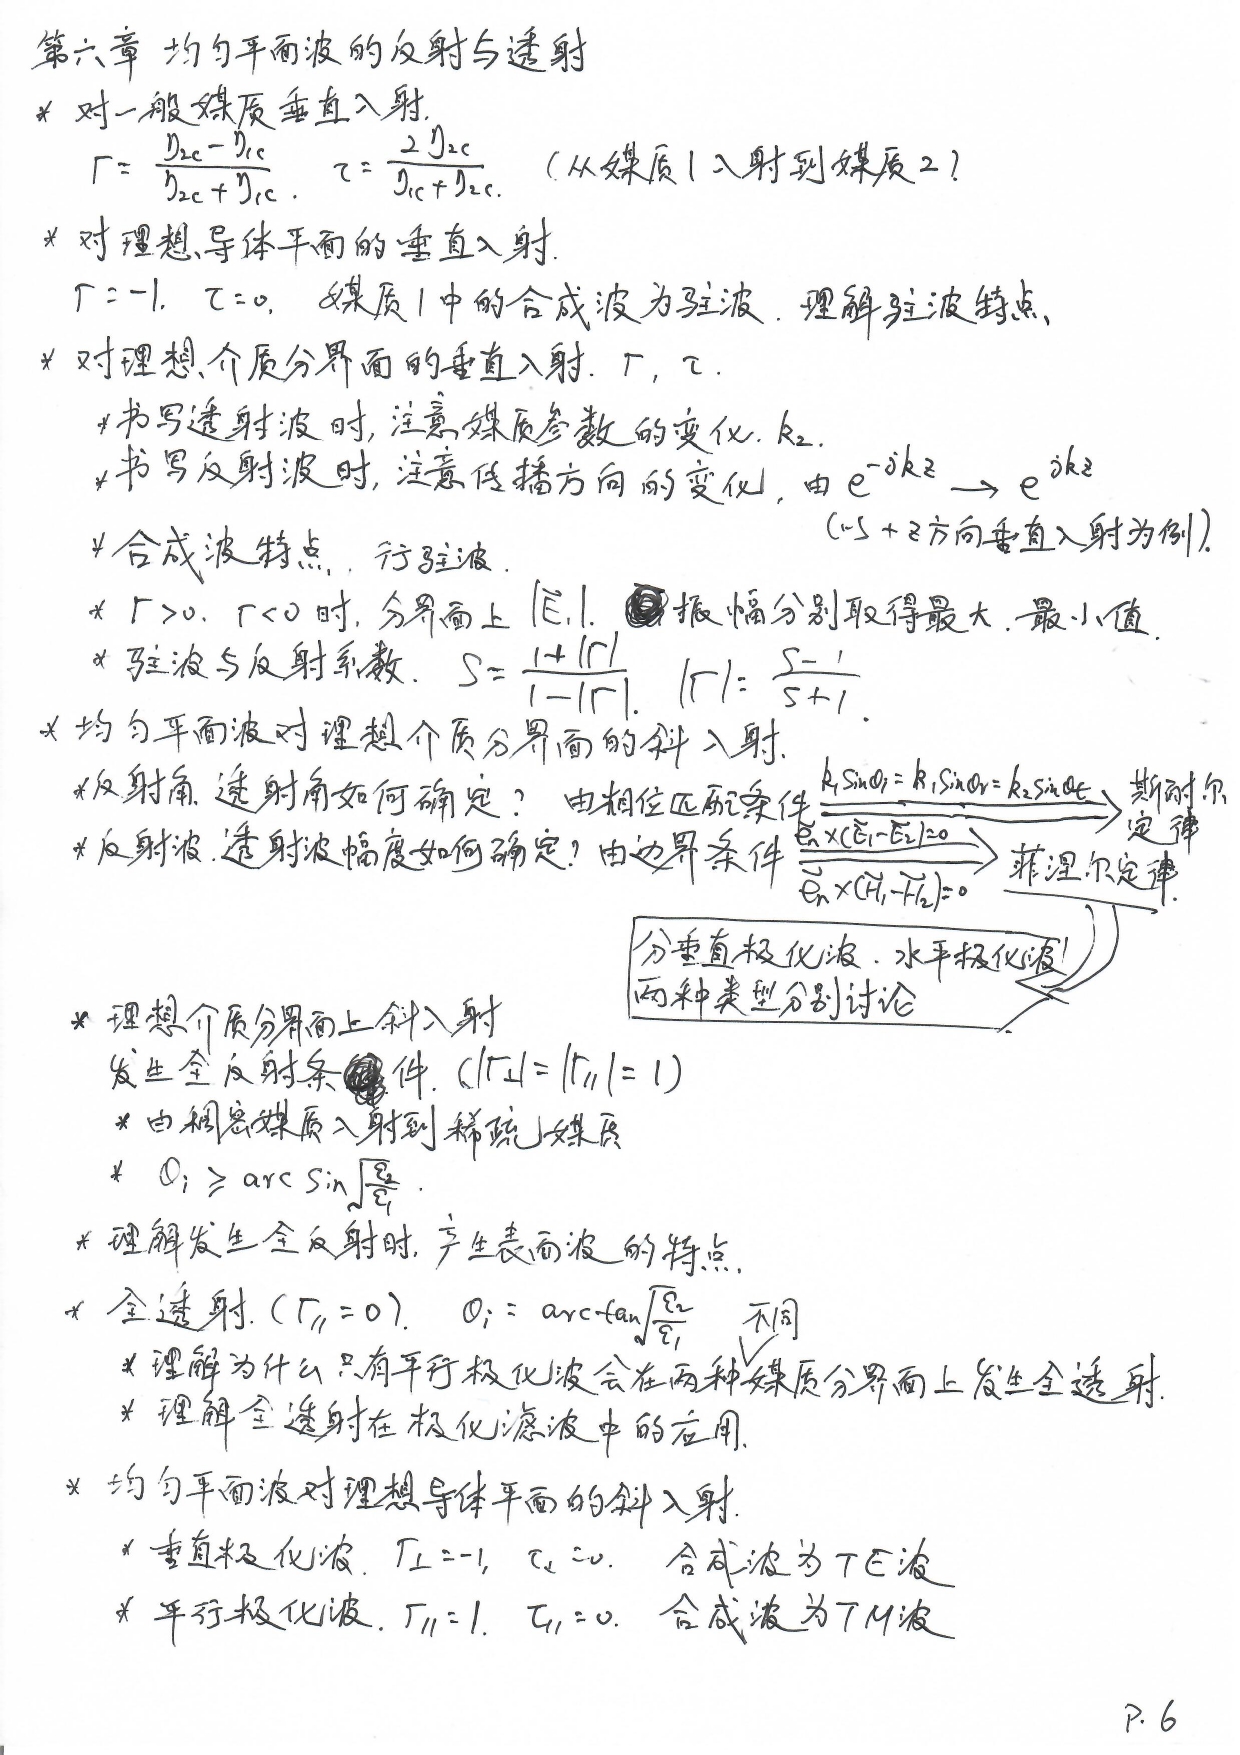 第六章 均匀平面波的反射与透射
* 对一般媒质垂直入射.
Γ = (η2c − η1c)/(η2c + η1c). τ = 2η2c/(η1c + η2c). (从媒质1入射到媒质2)
* 对理想导体平面的垂直入射.
Γ = -1. τ = 0. 媒质1中的合成波为驻波. 理解驻波特点、
* 对理想介质分界面的垂直入射. Γ, τ.
* 书写透射波时, 注意媒质参数的变化. k₂.
* 书写反射波时, 注意传播方向的变化, 由 e^{-jkz} → e^{jkz}
(以+z方向垂直入射为例).
* 合成波特点. 行驻波.
* Γ>0. Γ<0时, 分界面上 |E₁|. 振幅分别取得最大、最小值.
* 驻波与反射系数. S = (1+|Γ|)/(1-|Γ|). |Γ| = (S-1)/(S+1).
* 均匀平面波对理想介质分界面的斜入射.
* 反射角、透射角如何确定? 由相位匹配条件 k₁sinθi = k₁sinθr = k₂sinθt 斯耐尔定律
* 反射波、透射波幅度如何确定? 由边界条件 e⃗n×(E⃗₁-E⃗₂)=0 e⃗n×(H⃗₁-H⃗₂)=0 菲涅尔定律.
分垂直极化波、水平极化波
两种类型分别讨论
* 理想介质分界面上斜入射
发生全反射条件. (|Γ⊥| = |Γ//| = 1)
* 由稠密媒质入射到稀疏媒质
* θi ≥ arc sin√(ε₂/ε₁).
* 理解发生全反射时, 产生表面波的特点.
* 全透射. (Γ// = 0). θi = arctan√(ε₂/ε₁) 不同
* 理解为什么只有平行极化波会在两种媒质分界面上发生全透射.
* 理解全透射在极化滤波中的应用.
* 均匀平面波对理想导体平面的斜入射.
* 垂直极化波. Γ⊥ = -1, τ⊥ = 0. 合成波为TE波
* 平行极化波. Γ// = 1. τ// = 0. 合成波为TM波
P. 6